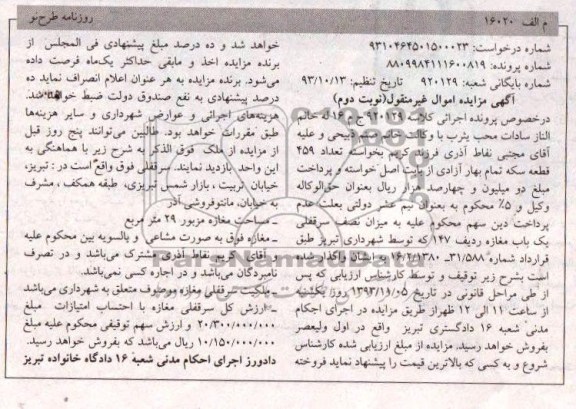 م الف ۱۶۰۲۰
روزنامه طرح‌نو
شماره درخواست: ۹۳۱۰۴۶۴۵۰۱۵۰۰۰۲۳
شماره پرونده: ۸۸۰۹۹۸۴۱۱۱۶۰۰۸۱۹
شماره بایگانی شعبه: ۹۲۰۱۲۹ تاریخ تنظیم: ۹۳/۱۰/۱۳
آگهی مزایده اموال غیرمنقول(نوبت دوم)
درخصوص پرونده اجرائی کلاسه ۹۲۰۱۲۹ ج م ۱۶ له خانم
الناز سادات محب یثرب با وکالت خانم ذبیحی و علیه
آقای مجتبی نفاط آذری فرزند کریم بخواسته تعداد ۴۵۹
قطعه سکه تمام بهار آزادی از بابت اصل خواسته و پرداخت
مبلغ دو میلیون و چهارصد هزار ریال بعنوان حق‌الوکاله
وکیل و ۵٪ محکوم به بعنوان نیم عشر دولتی بعلت عدم
پرداخت دین سهم محکوم علیه به میزان نصف سرقفلی
یک باب مغازه ردیف ۱۴۷ که توسط شهرداری تبریز طبق
قرارداد شماره ۳۱/۵۸۸- به ایشان واگذار شده
است بشرح زیر توقیف و توسط کارشناس ارزیابی که پس
از طی مراحل قانونی در تاریخ ۱۳۹۳/۱۱/۰۵ روز یکشنبه
از ساعت ۱۱ الی ۱۲ ظهر از طریق مزایده در اجرای احکام
مدنی شعبه ۱۶ دادگستری تبریز واقع در اول ولیعصر
بفروش خواهد رسید. مزایده از مبلغ ارزیابی شده کارشناس
شروع و به کسی که بالاترین قیمت را پیشنهاد نماید فروخته
خواهد شد و ده درصد مبلغ پیشنهادی فی المجلس از
برنده مزایده اخذ و مابقی حداکثر یک‌ماه فرصت داده
می‌شود. برنده مزایده به هر عنوان اعلام انصراف نماید ده
درصد پیشنهادی به نفع صندوق دولت ضبط خواهد شد.
هزینه‌های اجرائی و عوارض شهرداری و سایر هزینه‌ها
طبق مقررات خواهد بود. طالبین می‌توانند پنج روز قبل
از مزایده از ملک فوق الذکر به شرح زیر با هماهنگی به
این واحد بازدید نمایند. سرقفلی فوق واقع است در : تبریز،
خیابان تربیت ، بازار شمس تبریزی، طبقه همکف ، مشرف
به خیابان، مانتوفروشی آذر
ـ مساحت مغازه مزبور ۲۹ متر مربع
ـ مغازه فوق به صورت مشاعی و بالسویه بین محکوم علیه
و آقای کریم نفاط آذری مشترک می‌باشد و در تصرف
نامبردگان می‌باشد و در اجاره کسی نمی‌باشد.
ـ ملکیت سرقفلی مغازه موصوف متعلق به شهرداری می‌باشد
ـ ارزش کل سرقفلی مغازه با احتساب امتیازات مبلغ
۲۰/۳۰۰/۰۰۰/۰۰۰ و ارزش سهم توقیفی محکوم علیه مبلغ
۱۰/۱۵۰/۰۰۰/۰۰۰ ریال می‌باشد که بفروش خواهد رسید.
دادورز اجرای احکام مدنی شعبه ۱۶ دادگاه خانواده تبریز